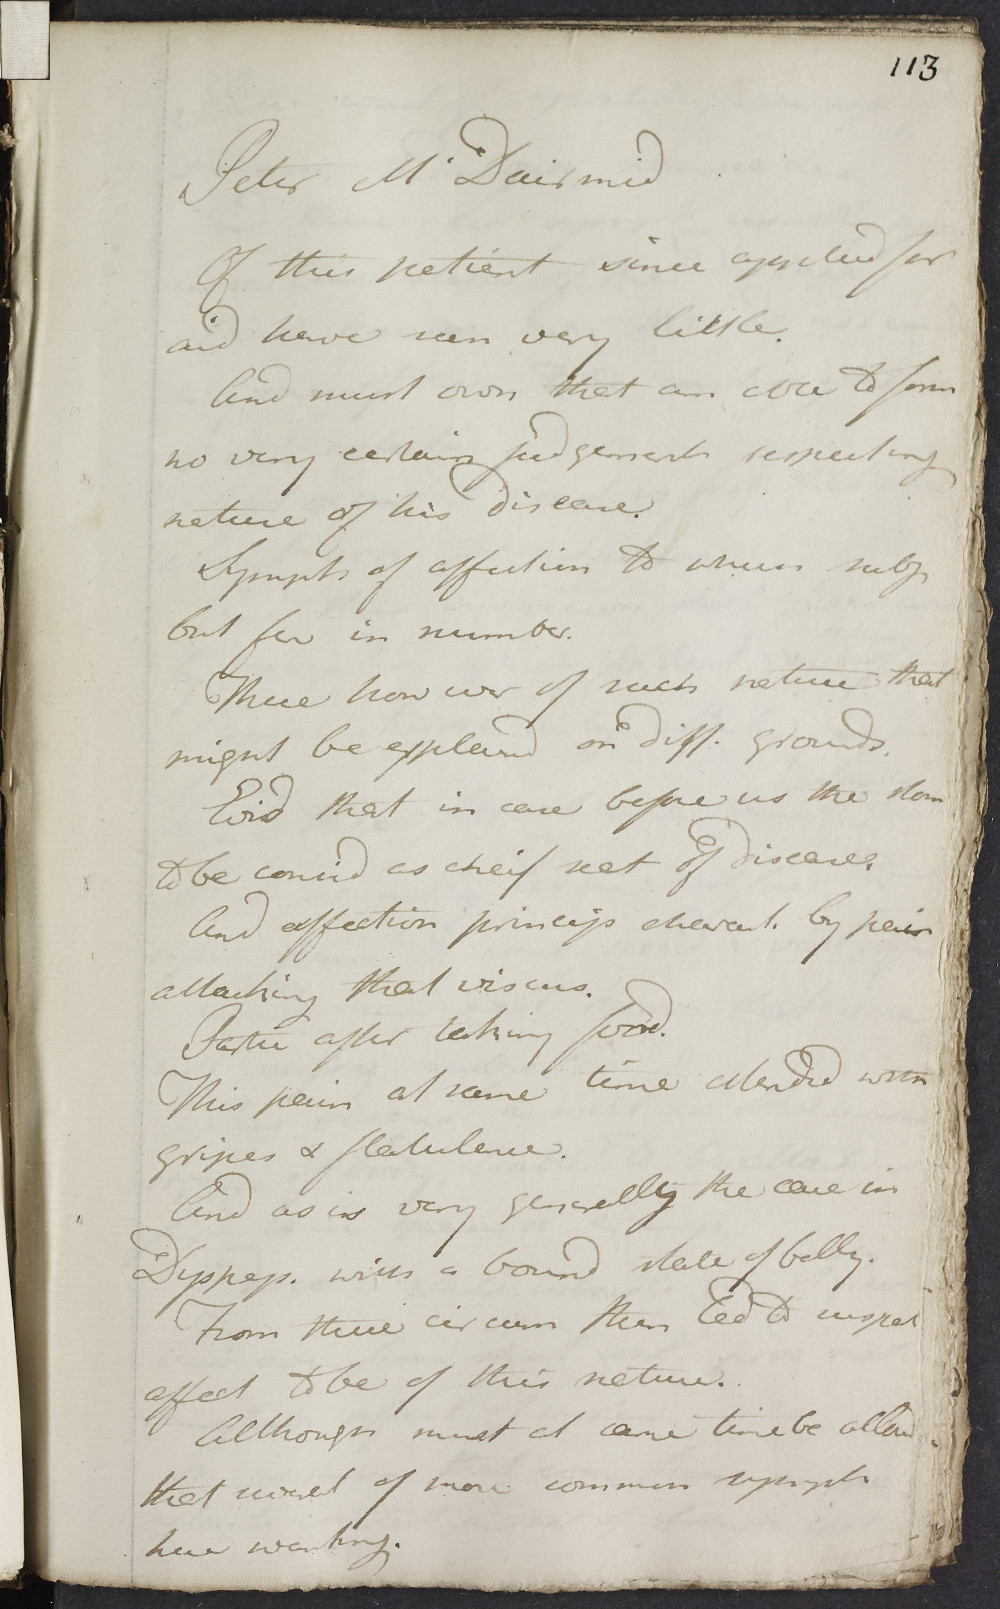 113
Peter McDairmid
Of this patient since applied for
aid have seen very little.
And must own that am able to form
no very certain judgements respecting
nature of his disease.
Sympts of affection to whom subj
but few in number.
These however of such nature that
might be explaind on diff. grounds.
Evid that in case before us the stom
to be consid as cheif seat of disease.
And affection princips charact. by pain
attacking that viscus.
Partic after taking food.
This pain at same time attended with
gripes & flatulence.
And as is very generally the case in
Dyspeps. with a bound state of belly.
From these circum then led to suspect
affect to be of this nature.
Although must at same time be allowd
that several of more common sympts
here wanting.